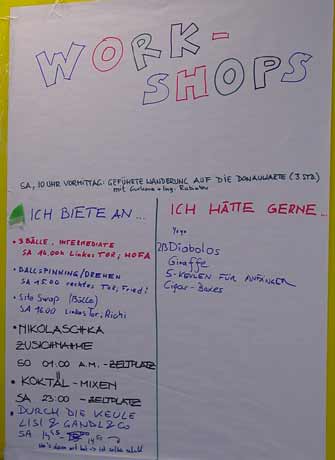 WORK-
SHOPS
SA, 10 UHR VORMITTAG: GEFÜHRTE WANDERUNG AUF DIE DONAUWARTE (3 STD.)
mit
ICH BIETE AN...
• 3 BÄLLE, INTERMEDIATE
SA 14.00h Linkes TOR, HOFA
• BALLSPINNING/DREHEN
SA 15:00 rechtes TOR, Fried!
• Site Swap (Bälle)
SA 16.00 Linkes Tor, Richi
• NIKOLASCHKA
ZUSICHNAHME
SO 01.00 A.M. - ZELTPLATZ
• KOKTÄL - MIXEN
SA 23:00 - ZELTPLATZ
• DURCH DIE KEULE
LISI & GANDL & CO
SA 14
ICH HÄTTE GERNE...
Yoga
Diabolos
Giraffe
5-KEULEN FÜR ANFÄNGER
Cigar-Boxes